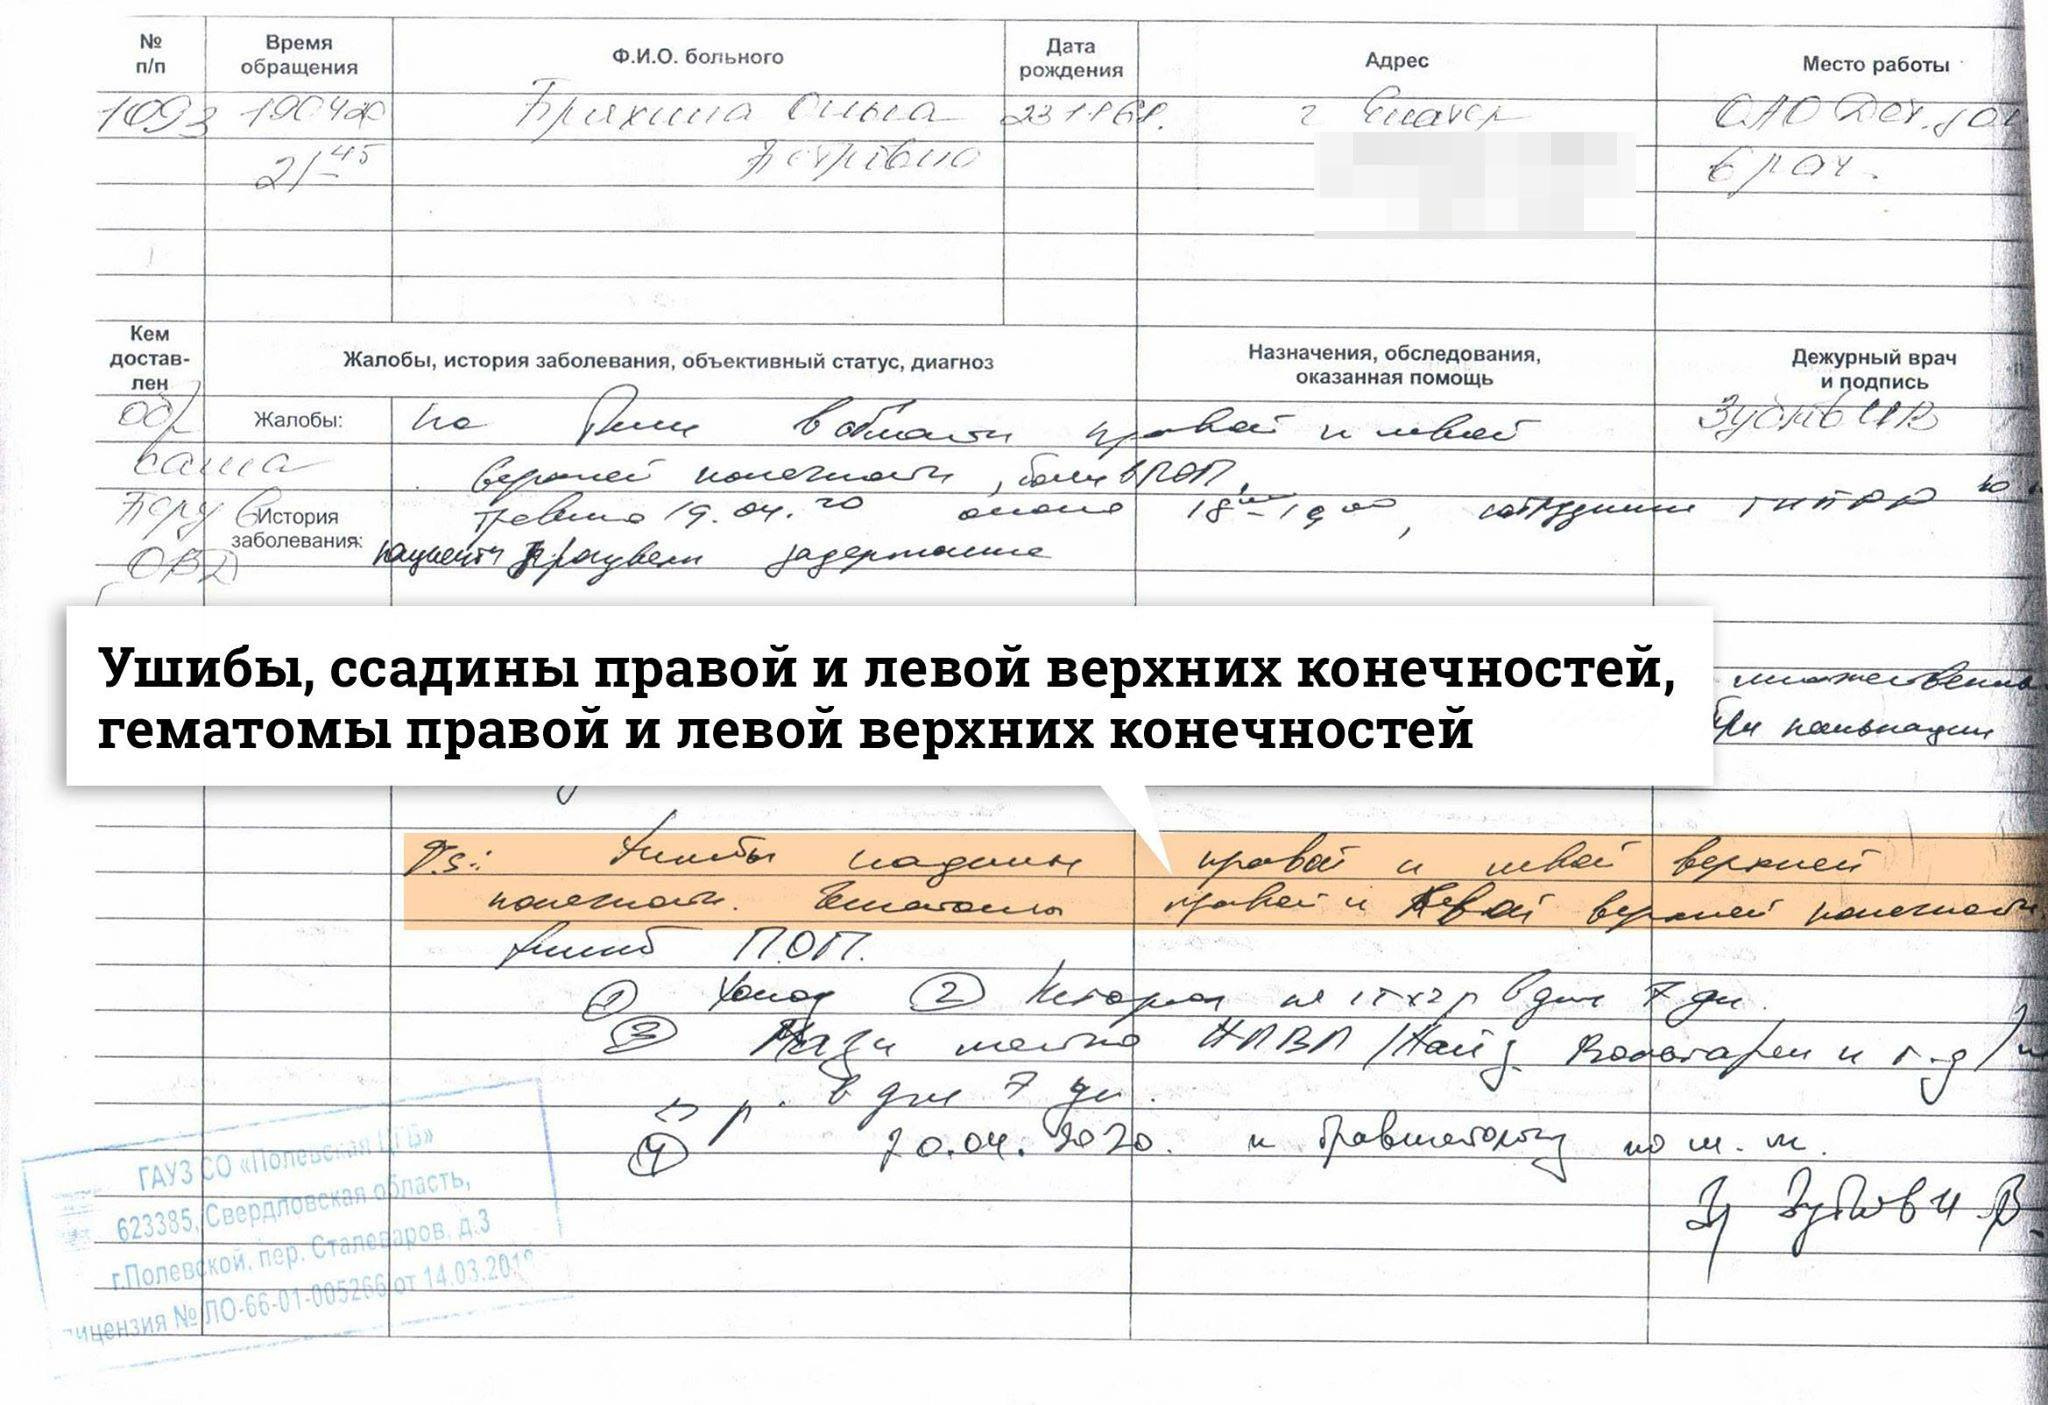 № п/п
Время обращения
Ф.И.О. больного
Дата рождения
Адрес
Место работы
1093
190420
Ольга
г
ОАО
21 45
Петровна
врач.
Кем достав-лен
Жалобы, история заболевания, объективный статус, диагноз
Назначения, обследования, оказанная помощь
Дежурный врач и подпись
Жалобы:
на боли в области правой и левой
верхней конечности, боли в ПОП.
История заболевания:
Травма 19.04.20 около 18 00 - 19 00, сотрудники
пациенту произвели задержание
ОВД
Ушибы, ссадины правой и левой верхних конечностей,
гематомы правой и левой верхних конечностей
множественные
при пальпации
Ds: Ушибы ссадины правой и левой верхней
конечности. Гематомы правой и левой верхней конечности
Ушиб П.ОП.
① Холод ② Кеторол по 1т х 2 р в день 7 дн.
③ Мази местно НПВП / Найз, Вольтарен и т.д /
р. в день 7 дн.
④ 20.04.2020. к травматологу по м. ж.
Зубков И.В.
ГАУЗ СО «Полевская ЦГБ»
623385, Свердловская область,
г.Полевской, пер. Сталеваров, д.3
№ ЛО-66-01-005266 от 14.03.201